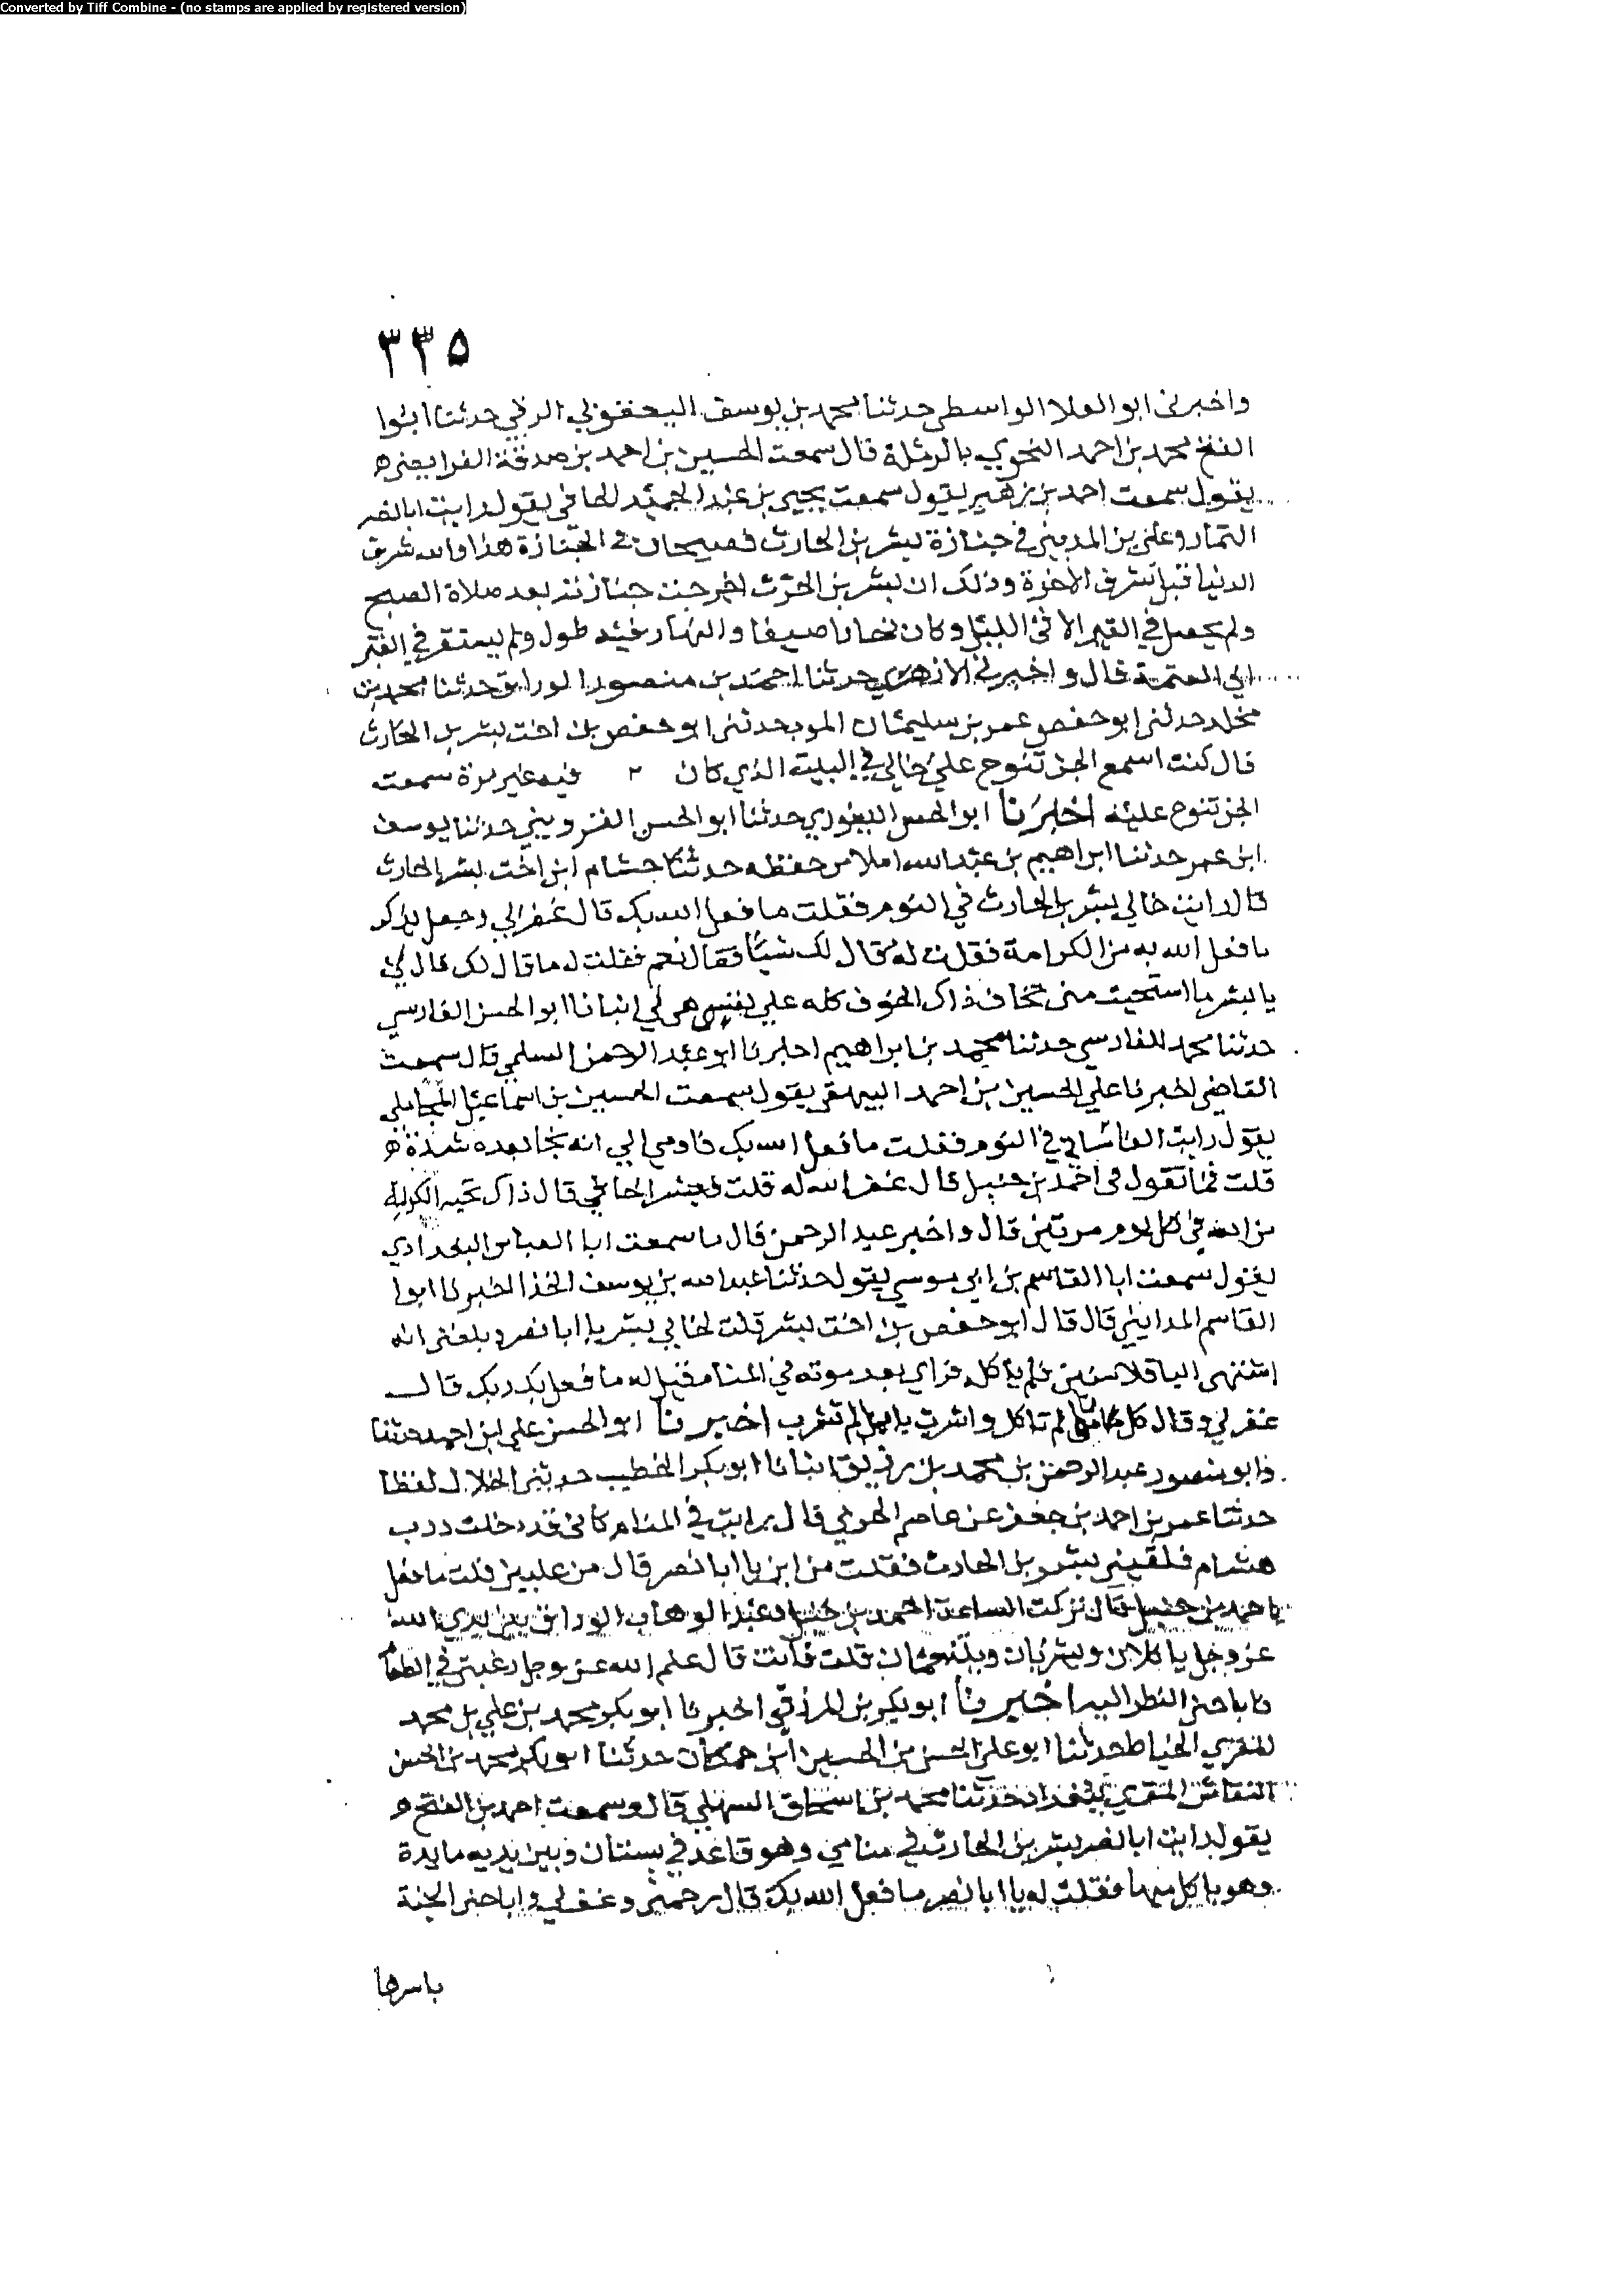 Converted by Tiff Combine - (no stamps are applied by registered version)
٣٣٥
واخبرنى ابو العلا الواسطى حدثنا محمد بن يوسف اليعقوبي الرقي حدثنا ابوا
الفتح محمد بن احمد النحوي بالرملة قال سمعت الحسين بن احمد بن صدقة الفرايضى
يقول سمعت احمد بن زهير يقول سمعت يحيى بن عبد الحميد الحافى يقول رايت ابا نصر
التمار وعلى بن المدينى في جنازة بشر بن الحارث فصيحان فى الجنازة هذا والله شرف
الدنيا قبل شرف الاخرة وذلك ان بشر بن الحرث اخرجت جنازته بعد صلاة الصبح
ولم يحصل في القبر الا فى الليل وكان نهارا صيفا والنهار فيه طول ولم يستقر في القبر
الى العتمة قال واخبرنى الازهري حدثنا احمد بن منصور الوراق حدثنا محمد بن
مخلد حدثنى ابو حفص عمر بن سليمان المودب حدثنى ابو حفص بن اخت بشر بن الحارث
قال كنت اسمع الجن تنوح على خالي في البيت الذي كان فيه غير مرة سمعت
الجن تنوح عليه اخبرنا ابو الحسن الدينوري حدثنا ابو الحسن القزويني حدثنا يوسف
ابن عمر حدثنا ابراهيم بن عبد الله املا من حفظه حدثنا حشام ابن اخت بشر الحارث
قال رايت خالي بشر بن الحارث في النوم فقلت ما فعل الله بك قال غفر لي وجعل يذكر
ما فعل الله به من الكرامة فقلت له قال لك شيا فقال نعم فقلت له ما قال لك قال لي
يا بشر ما استحيت منى تخاف ذاك الخوف كله على نفس هى لي انبانا ابو الحسن الفارسي
حدثنا محمد الفارسي حدثنا محمد بن ابراهيم اخبرنا ابو عبد الرحمن السلمي قال سمعت
القاضى اخبرنا علي الحسين بن احمد البيهقى يقول سمعت الحسين بن اسماعيل المحاملي
يقول رايت القاشاني في النوم فقلت ما فعل الله بك فاومى الي انه نجا بعد شدة
قلت فما تقول فى احمد بن حنبل قال غفر الله له قلت فبشر الحافي قال ذاك تحيه الكرامة
من الله في كل يوم مرتين قال واخبر عبد الرحمن قال سمعت ابا العباس البغدادي
يقول سمعت ابا القاسم بن ابي موسى يقول حدثنا عبد الله بن يوسف الخذا اخبرنا ابوا
القاسم المدايني قال قال ابو حفص بن اخت بشر قلت لخالي بشر يا ابا نصر بلغنى انه
اشتهى الباقلا سنين فلم ياكل فراي بعد موته في المنام فقيل له ما فعل بك ربك قال
غفر لي وقال كل يا من لم تاكل واشرب يا من لم تشرب اخبرنا ابو الحسن علي ابن احمد حدثنا
وابو منصور عبد الرحمن بن محمد بن رزيق انبانا ابو بكر الخطيب حدثنى الخلال لفظا
حدثنا عمر بن احمد بن جعفر عن عاصم الحربي قال رايت في المنام كانى قد دخلت درب
هشام فلقينى بشر بن الحارث فقلت من اين يا ابا نصر قال من عليين قلت ما فعل
احمد بن حنبل قال تركت الساعة احمد بن حنبل وعبد الوهاب الوراق بين يدي الله
عز وجل ياكلان ويشربان ويتنعمان قلت فانت قال علم الله عز وجل رغبتى في الطعام
فاباحنى النظر اليه اخبرنا ابو بكر بن المرزقي اخبرنا ابو بكر محمد بن علي بن محمد
المقري الخياط حدثنا ابو على الحسن بن الحسين ابن حمكان حدثنا ابو بكر محمد بن الحسن
النقاش المقري ببغداد حدثنا محمد بن اسحاق السهيلي قال وسمعت احمد بن الفتح
يقول رايت ابا نصر بشر بن الحارث في منامي وهو قاعد في بستان وبين يديه مايدة
وهو ياكل منها فقلت له يا ابا نصر ما فعل الله بك قال رحمنى وغفر لي واباحنى الجنة
باسرها